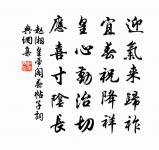 迎氣來歸祚
宜春祝降祥
皇心勤治切
應喜寸陰長
趙湘皇帝閣春帖子詞
典網集